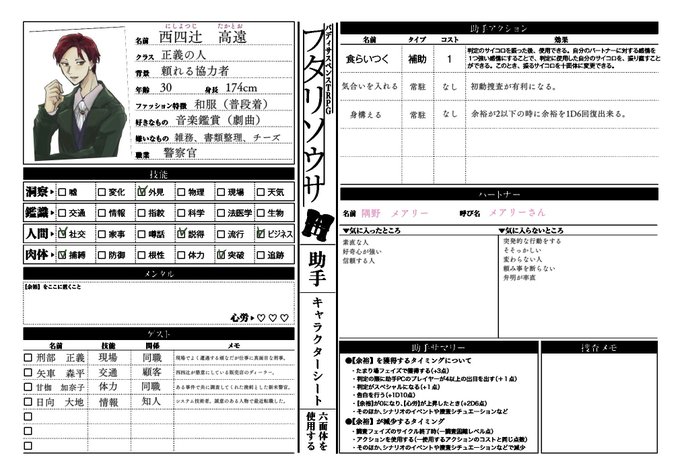 名前 西四辻 高遠
にしよつじ たかとお
クラス 正義の人
背景 頼れる協力者
年齢 30 身長 174cm
ファッション特徴 和服（普段着）
好きなもの 音楽鑑賞（劇曲）
嫌いなもの 雑務、書類整理、チーズ
職業 警察官
技能
洞察 嘘 変化 外見 物理 現場 天気
鑑識 交通 情報 指紋 科学 法医学 生物
人間 社交 家事 噂話 説得 流行 ビジネス
肉体 捕縛 防御 根性 体力 突破 追跡
メンタル
【余裕】をここに置くこと
心労 ♡ ♡ ♡
ゲスト
名前 技能 関係 メモ
刑部 正義 現場 同職 現場でよく遭遇する頑なだが仕事に真面目な刑事。
矢車 森平 交通 顧客 西四辻が懇意にしている販売店のディーラー。
甘枷 加奈子 体力 同職 ある事件で共に調査してくれた溌剌とした新米警官。
日向 大地 情報 知人 システム技術者。誠意のある人物で最近転職した。
バディサスペンスTRPG
フタリソウサ
助手
キャラクターシート
六面体を
使用する
助手アクション
名前 タイプ コスト 効果
食らいつく 補助 1 判定のサイコロを振った後、使用できる。自分のパートナーに対する感情を
1つ強い感情にすることで、判定に使用した自分のサイコロを、振り直すこと
ができる。このとき、振るサイコロを十面体に変更できる。
気合いを入れる 常駐 なし 初動捜査が有利になる。
身構える 常駐 なし 余裕が2以下の時に余裕を1D6回復出来る。
パートナー
名前 隅野 メアリー 呼び名 メアリーさん
▼気に入ったところ
素直な人
好奇心が強い
信頼する人
▼気に入らないところ
突発的な行動をする
そそっかしい
変わらない人
頼み事を断らない
弁明が率直
助手サマリー
●【余裕】を獲得するタイミングについて
・たまり場フェイズで獲得する(+3点)
・判定の際に助手PCのプレイヤーが4以上の出目を出す(+1点)
・判定がスペシャルになる(+1点)
・告白を行う(+1D10点)
・【余裕】が0になり、【心労】が上昇したとき(+2D6点)
・そのほか、シナリオのイベントや捜査シチュエーションなど
●【余裕】が減少するタイミング
・調査フェイズのサイクル終了時(ー調査困難レベル点)
・アクションを使用する(ー使用するアクションのコストと同じ点数)
・そのほか、シナリオのイベントや捜査シチュエーションなどで減少
捜査メモ